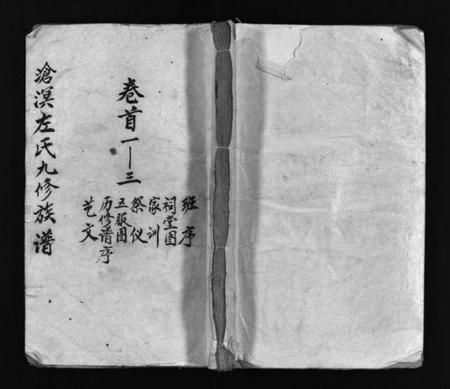 班序
祠堂图
家训
祭仪
五服图
历修谱序
艺文
卷首一—三
滄溟左氏九修族谱